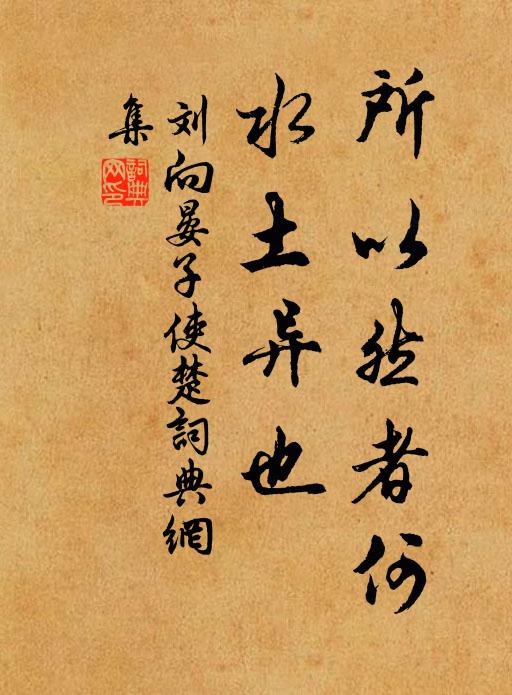 所以然者何
水土异也
刘向晏子使楚詞典網
集
詞典網印